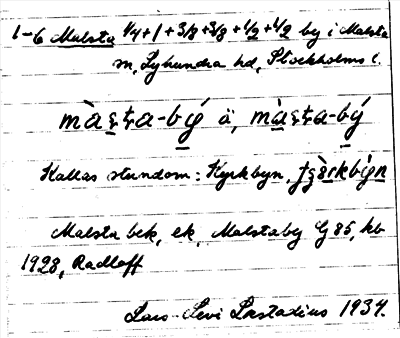 1-6 Malsta 1/4+1+3/8+3/8+1/2+1/2 by i Malsta
sn, Lyhundra hd, Stockholms l.
màʂʈa-bý ä, màʂʈa-bý
Kallas stundom: Kyrkbyn,
Malsta bek, ek, Malstaby G 85, kb
1928, Radloff
Lars-Levi Læstadius 1934.